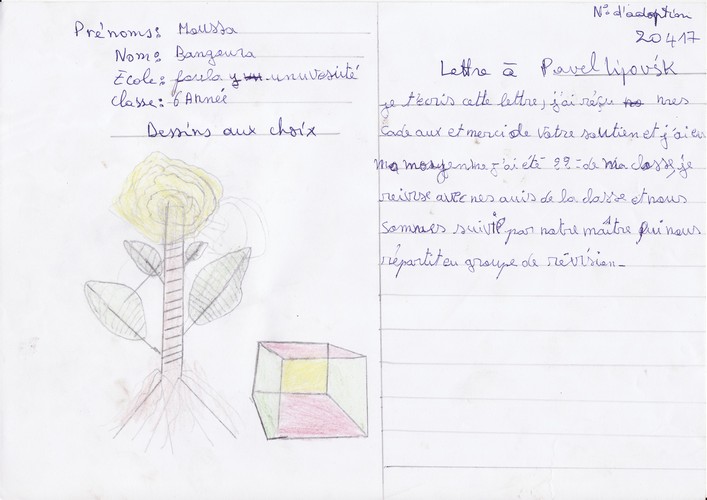 Prénoms: Moussa
Nom: Bangoura
École: foula
Classe: 6 Année
Dessins aux choix
N° d'adoption
20417
Lettre à Pavel Lipovsk
je t'écris cette lettre, j'ai réçu mes
Cadeaux et merci de Votre soutien et j'ai eu
ma moyenne j'ai été 22 de ma classe, je
reivise avec nes amis de la classe et nous
Sommes suivie par notre maître qui nous
répartit en groupe de révision.